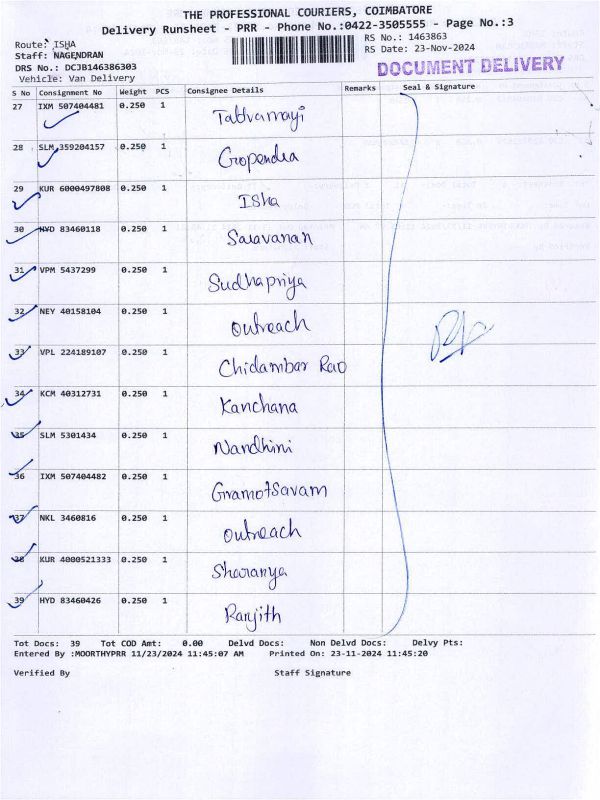 THE PROFESSIONAL COURIERS, COIMBATORE
Delivery Runsheet - PRR - Phone No.:0422-3505555 - Page No.:3
Route: ISHA
Staff: NAGENDRAN
DRS No.: DCJB146386303
Vehicle: Van Delivery
RS No.: 1463863
RS Date: 23-Nov-2024
DOCUMENT DELIVERY
S No Consignment No Weight PCS Consignee Details Remarks Seal & Signature
27 IXM 507404481 0.250 1 Tattvamayi
28 SLM 359204157 0.250 1 Gropendra
29 KUR 6000497808 0.250 1 ISha
30 HYD 83460118 0.250 1 Saravanan
31 VPM 5437299 0.250 1 Sudhapriya
32 NEY 40158104 0.250 1 outreach
33 VPL 224189107 0.250 1 Chidambar Rao
34 KCM 40312731 0.250 1 Kanchana
35 SLM 5301434 0.250 1 Nandhini
36 IXM 507404482 0.250 1 GramotSavam
37 NKL 3460816 0.250 1 outreach
38 KUR 4000521333 0.250 1 Sharanya
39 HYD 83460426 0.250 1 Ranjith
Tot Docs: 39 Tot COD Amt: 0.00 Delvd Docs: Non Delvd Docs: Delvy Pts:
Entered By :MOORTHYPRR 11/23/2024 11:45:07 AM Printed On: 23-11-2024 11:45:20
Verified By Staff Signature